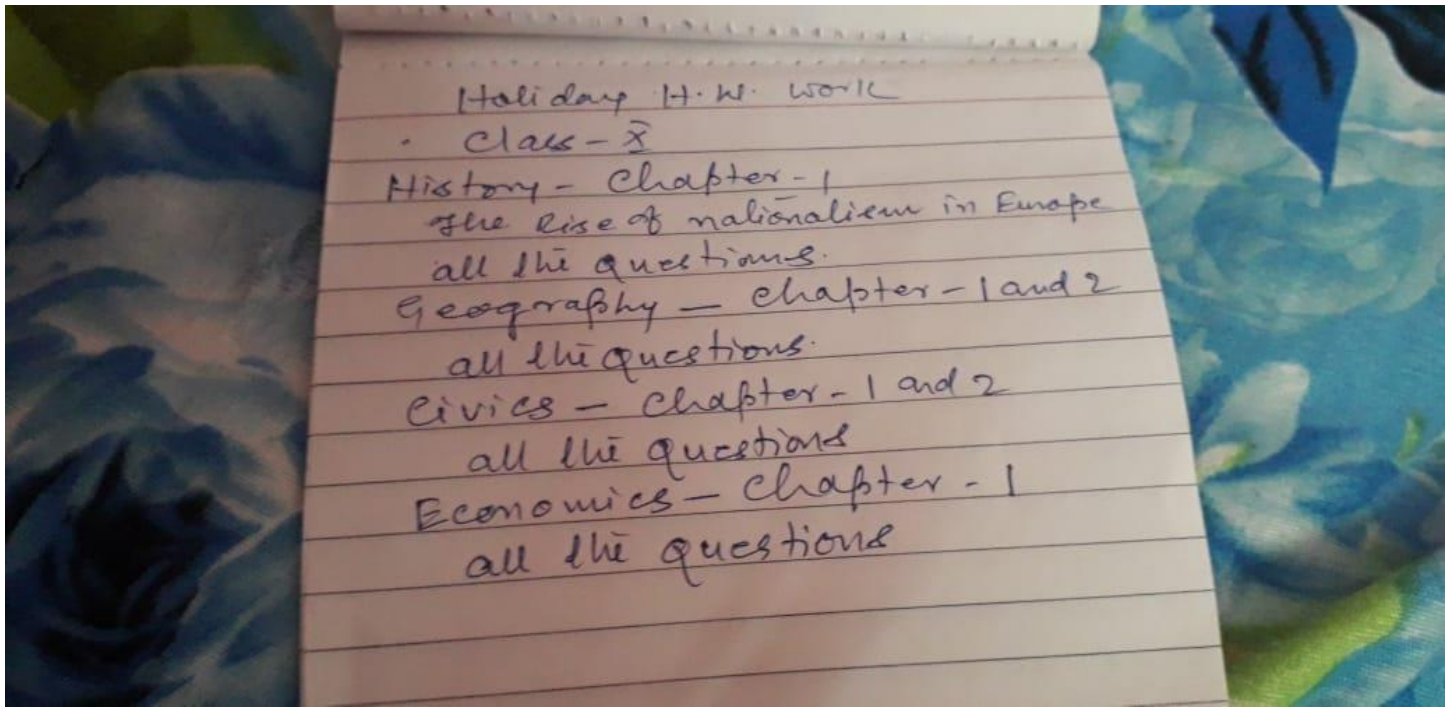 Holiday H.W. Work
. Class - X
History - Chapter - 1
The Rise of nationalism in Europe
all the questions.
Geography - Chapter - 1 and 2
all the questions.
Civics - Chapter - 1 and 2
all the questions
Economics - Chapter - 1
all the questions